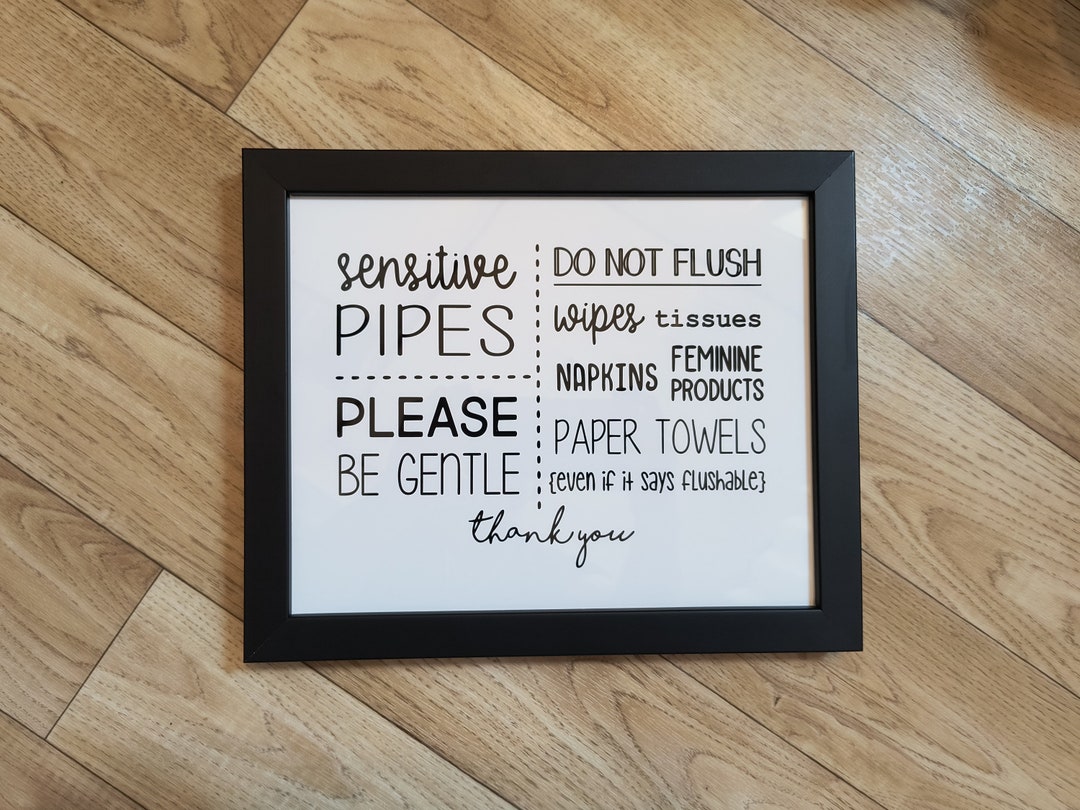 sensitive
PIPES
PLEASE
BE GENTLE
DO NOT FLUSH
wipes tissues
NAPKINS FEMININE PRODUCTS
PAPER TOWELS
{even if it says flushable}
thank you